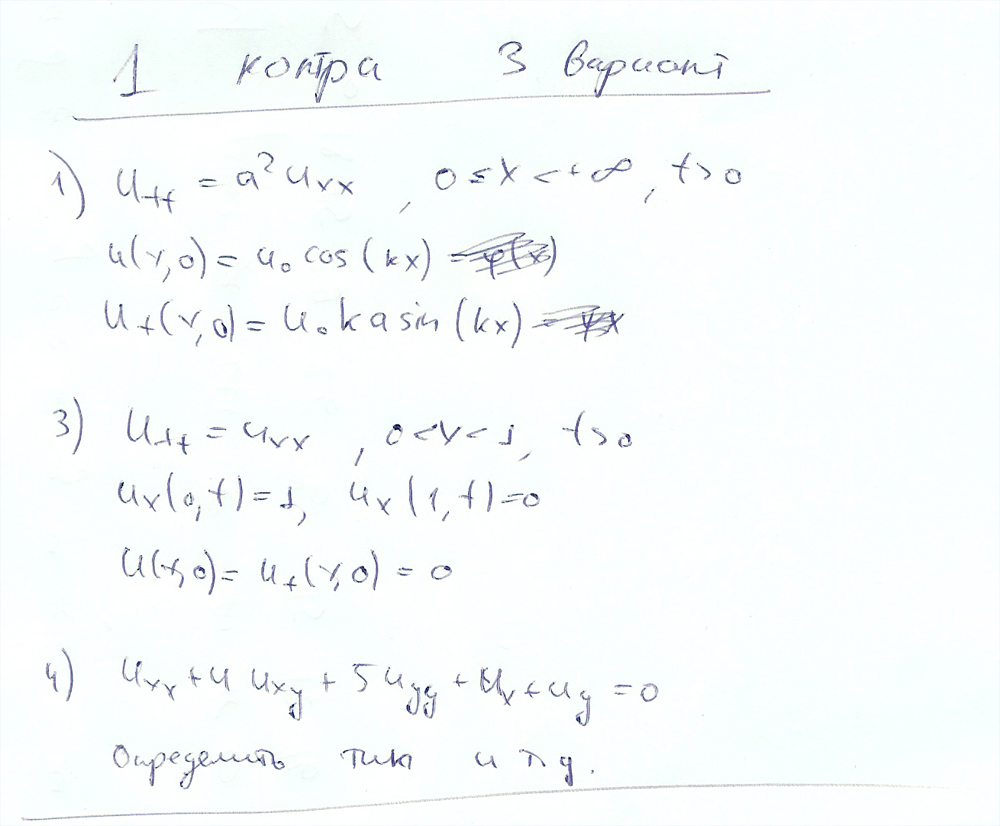 1 контра 3 вариант
1) u_tt = a² u_xx , 0 ≤ x < +∞, t > 0
u(x,0) = u₀ cos(kx)
u_t(x,0) = u₀ k a sin(kx)
3) u_tt = u_xx , 0 < x < 1, t > 0
u_x(0,t) = 1, u_x(1,t) = 0
u(x,0) = u_t(x,0) = 0
4) u_xx + 4 u_xy + 5 u_yy + u_x + u_y = 0
Определить тип и